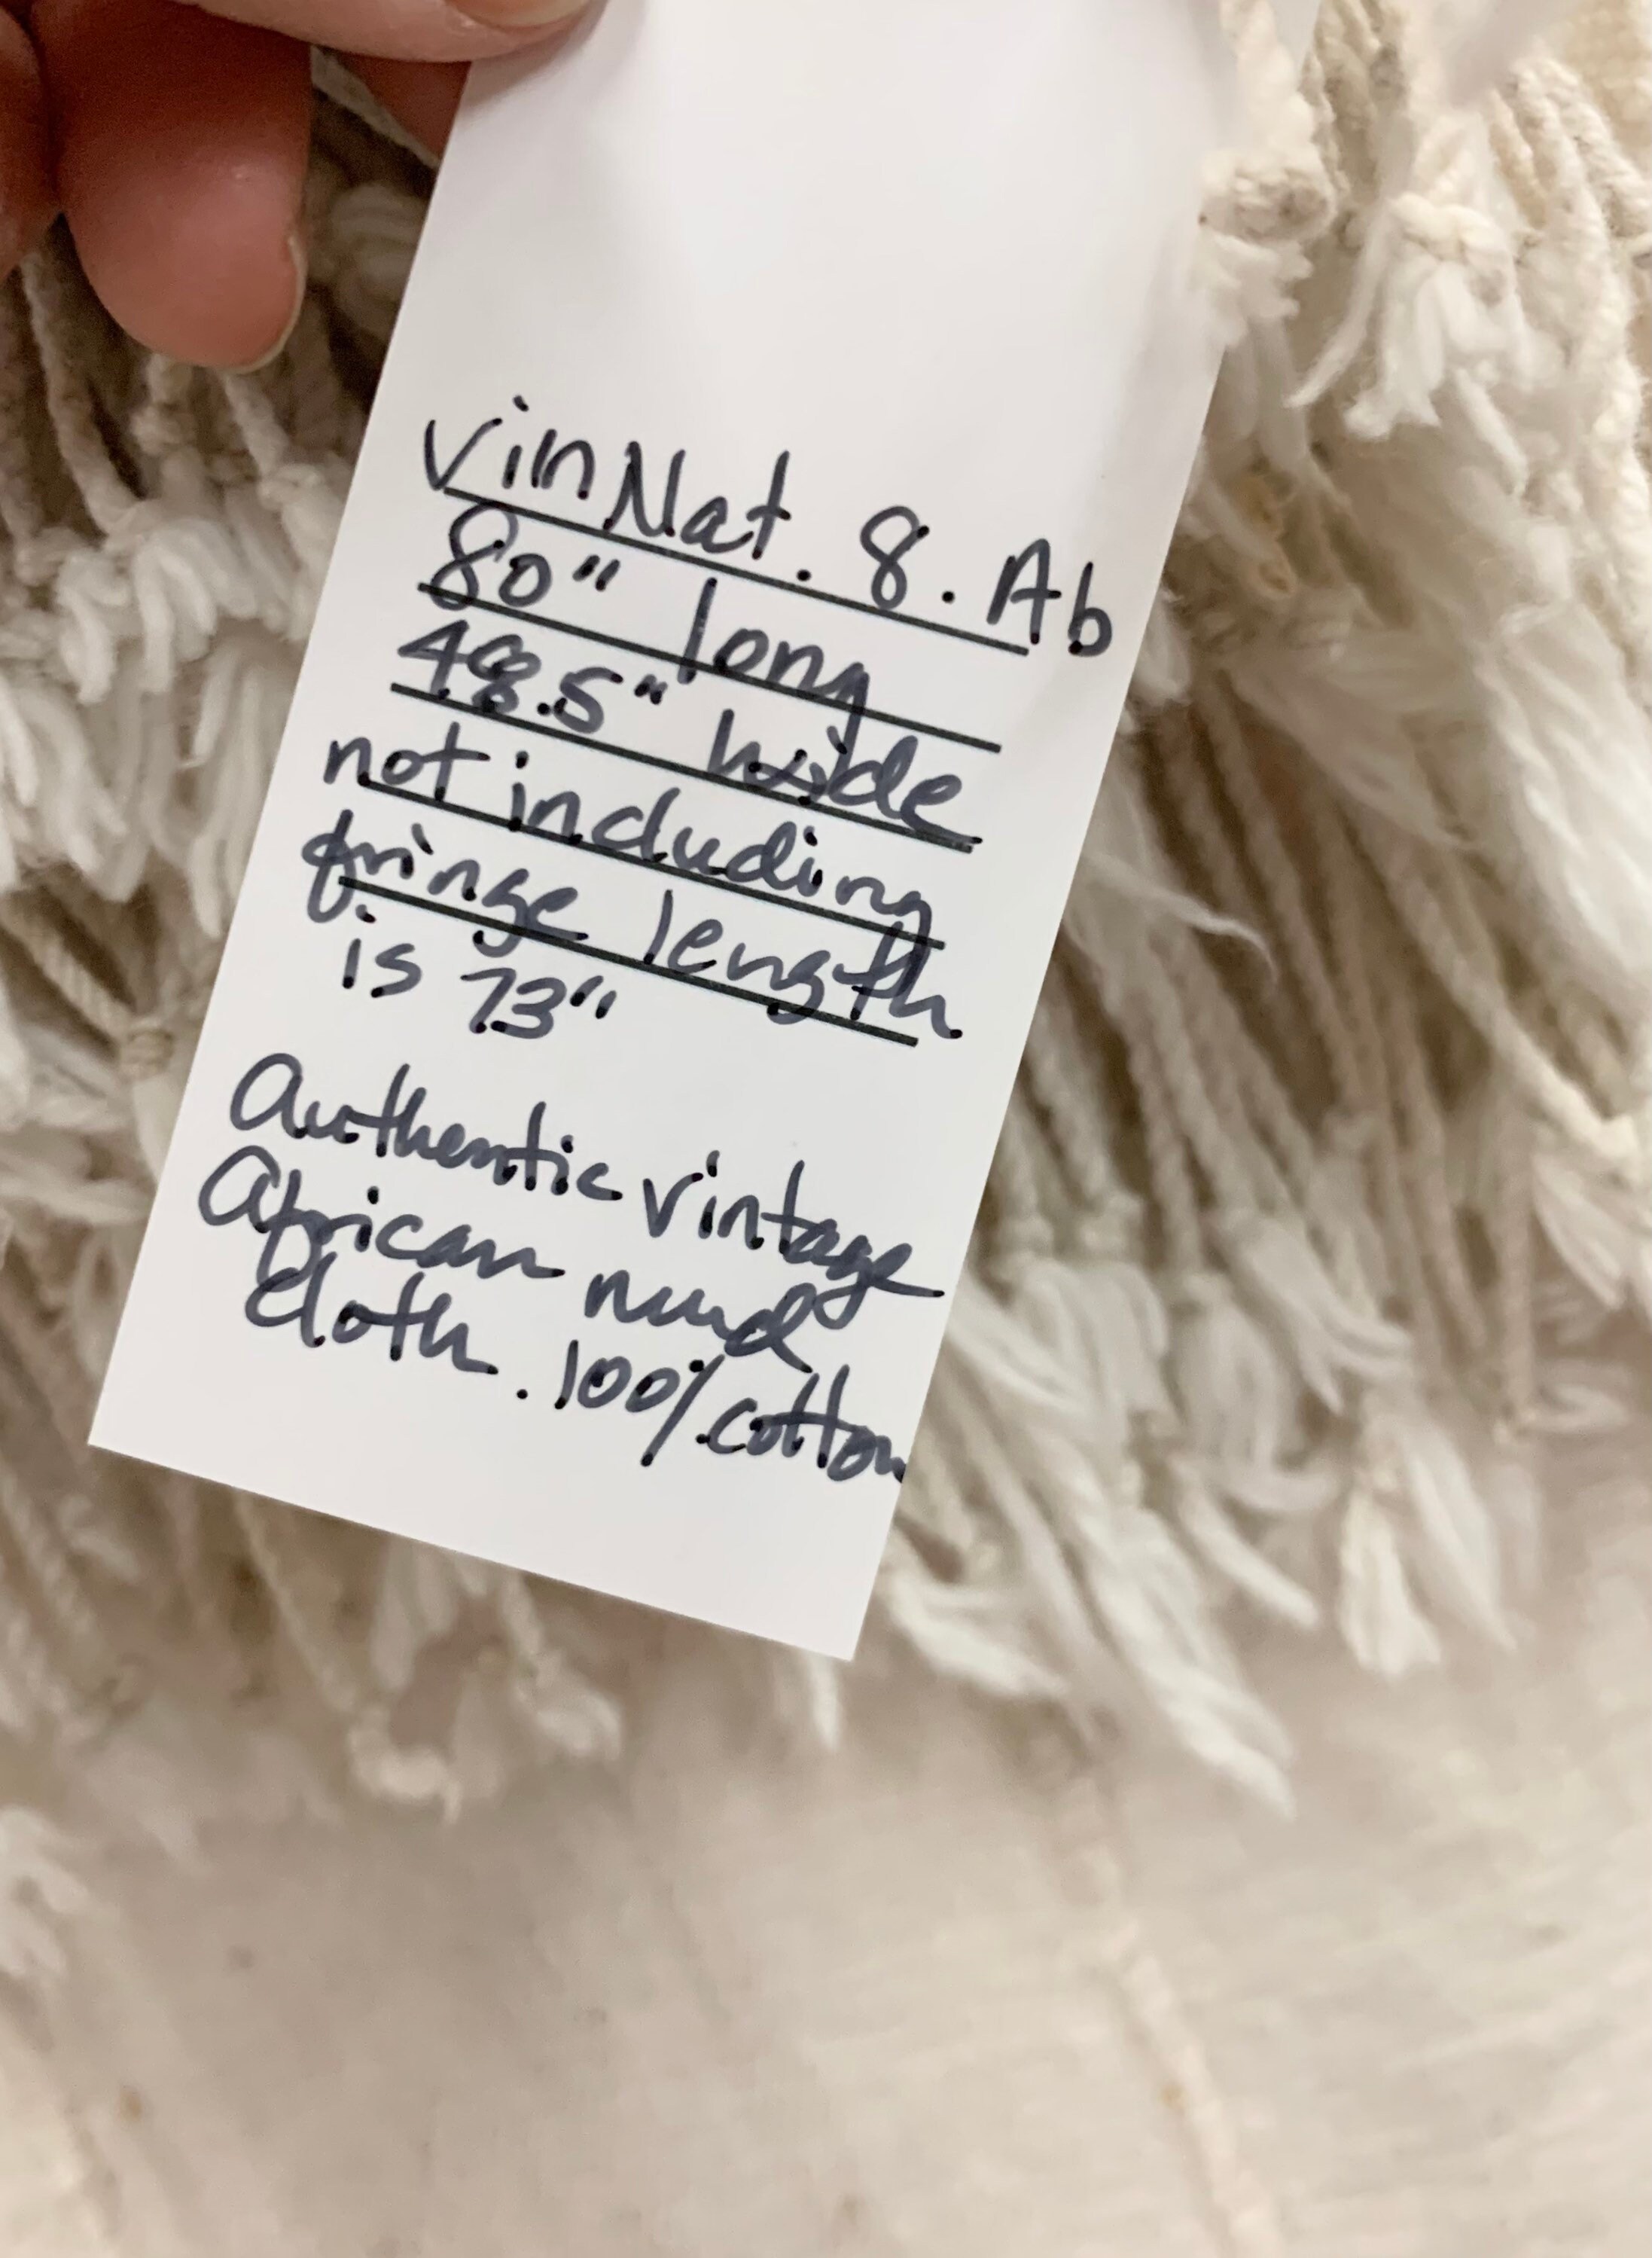 vinNat. 8. Ab
80" long
48.5" wide
not including
fringe length
is 73"
Authentic vintage
African mud
cloth. 100% cotton